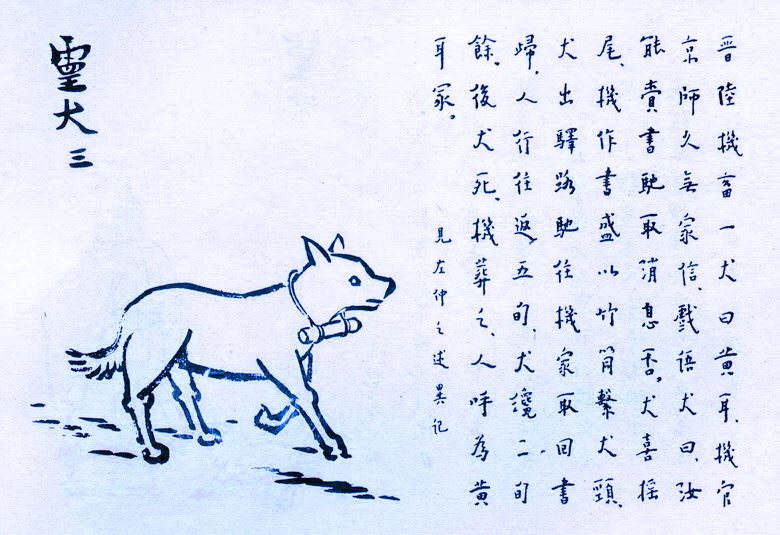 晋陸機畜一犬曰黄耳、機官
京師久無家信、戲語犬曰、汝
能賫書馳取消息否。犬喜搖
尾、機作書盛以竹筒繫犬頸、
犬出驛路馳往機家取回書
歸、人行往返五旬、犬纔二旬
餘、後犬死、機葬之、人呼為黄
耳冢。
見左仲之述異记
靈犬三